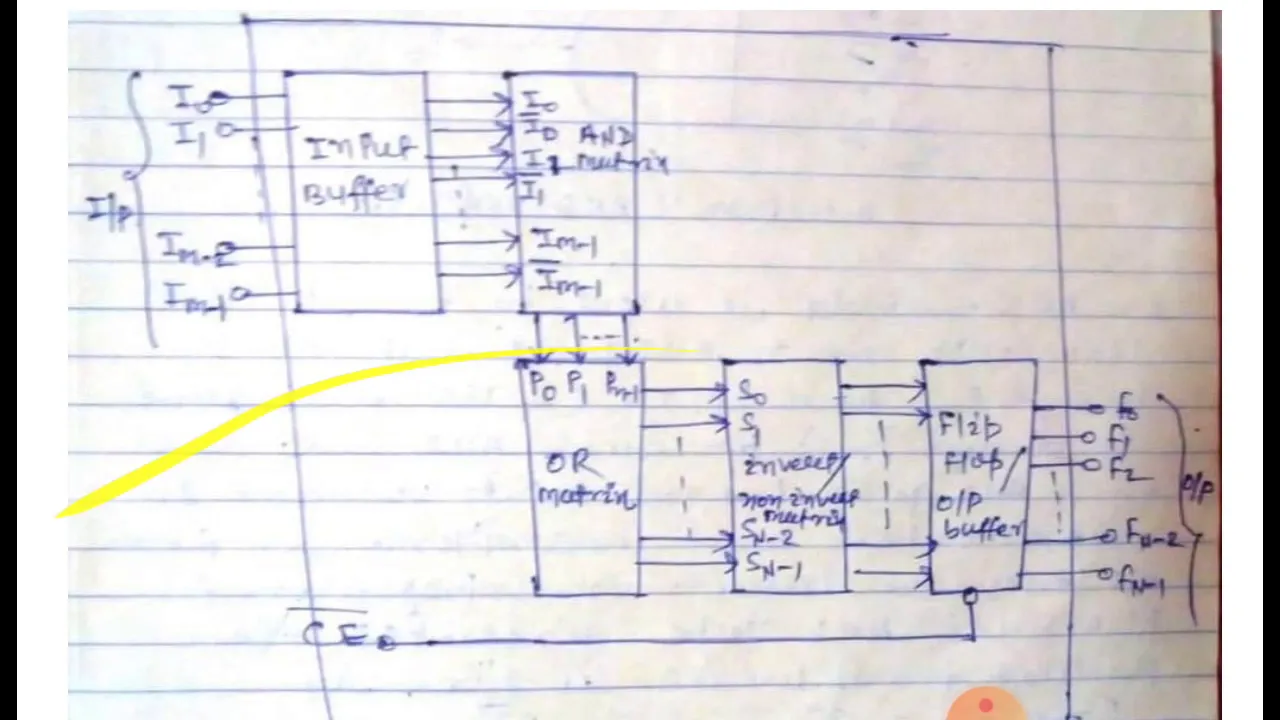 I0
I1
I/p
Im-2
Im-1
Input
Buffer
I0
I̅0 AND
I1 matrix
I̅1
Im-1
I̅m-1
P0 P1 Pn-1
OR
matrix
S0
S1
invert/
non invert
matrix
SN-2
SN-1
Flip
Flop/
O/P
buffer
f0
f1
F2
FN-2
fN-1
O/P
C̅E̅